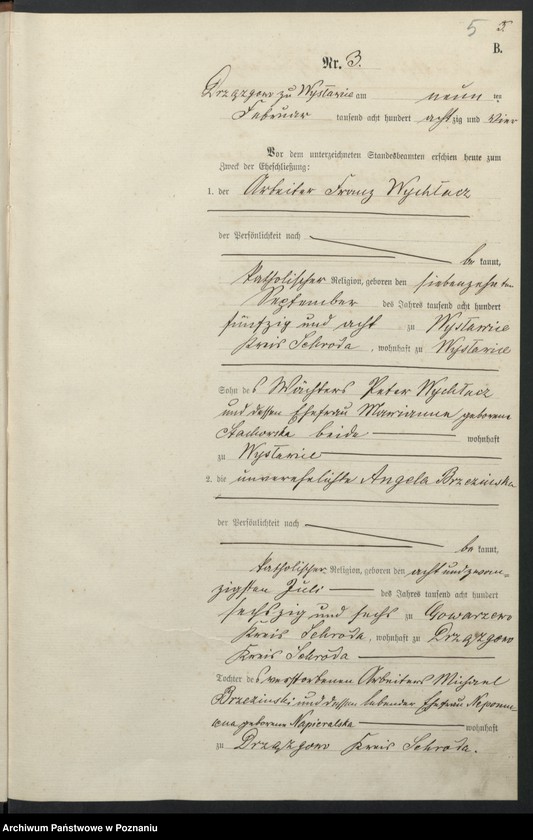 5 5.
B.
Nr. 3.
Drzązgowo zu Wysławice am neun ten
Februar tausend acht hundert achtzig und vier
Vor dem unterzeichneten Standesbeamten erschien heute zum
Zweck der Eheschließung:
1. der Arbeiter Franz Wychłacz
der Persönlichkeit nach
be kannt,
katholischer Religion, geboren den siebenzehn ten
September des Jahres tausend acht hundert
fünfzig und acht zu Wysławice
Kreis Schroda, wohnhaft zu Wysławice
Sohn des Wächters Peter Wychłacz
und dessen Ehefrau Marianne geborene
beide wohnhaft
zu Wysławice
2. die unverehelichte Angela Brzezinska
der Persönlichkeit nach
be kannt,
katholischer Religion, geboren den acht und zwan-
zigsten Juli des Jahres tausend acht hundert
sechszig und sechs zu Gowarzewo
Kreis Schroda, wohnhaft zu Drzązgowo
Kreis Schroda
Tochter des verstorbenen Arbeiters Michael
Brzezinski und dessen lebender Ehefrau Nepomu-
cena geborene Napieralska wohnhaft
zu Drzązgowo Kreis Schroda.
Archiwum Państwowe w Poznaniu